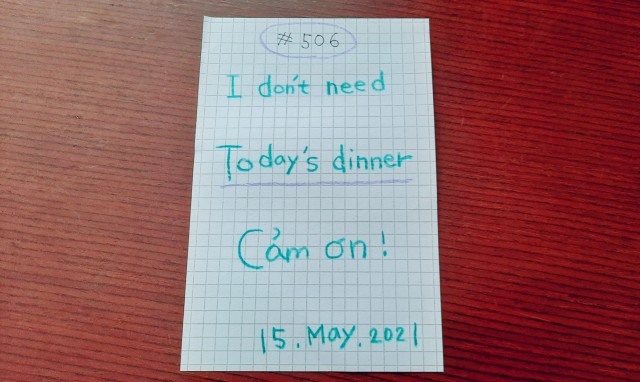 #506
I don't need
Today's dinner
Cảm ơn!
15. May. 2021